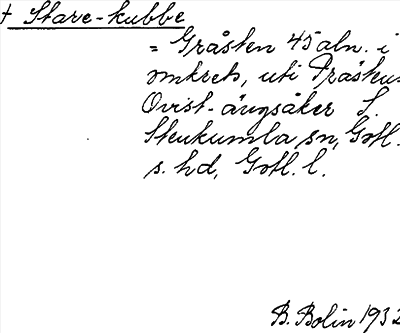 † Stare-kubbe
= Gråsten 45 aln. i
omkrets, uti Präskur
Qvist-ängsåker S.
Stenkumla sn, Gotl.
s. hd, Gotl. l.
B. Bolin 1932